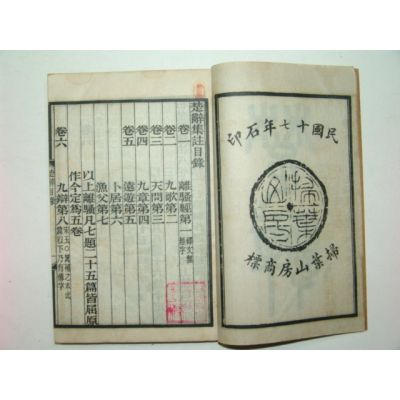 民國十七年石印
掃葉山房
掃葉山房商標
楚辭集註目錄
卷一
離騷經第一
卷二
九歌第二
卷三
天問第三
卷四
九章第四
卷五
遠遊第五
卜居第六
漁父第七
以上離騷凡七題二十五篇皆屈原
作今定爲五卷
卷六
九辯第八